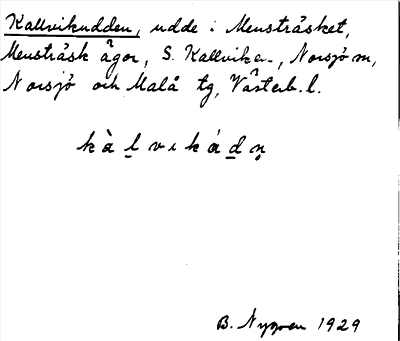 Kallvikudden, udde i Mensträsket,
Mensträsk ägor, S. Kallviken, Norsjö sn,
Norsjö och Malå tg, Västerb. l.
kàl̲vikád̲n̥
B. Nygren 1929